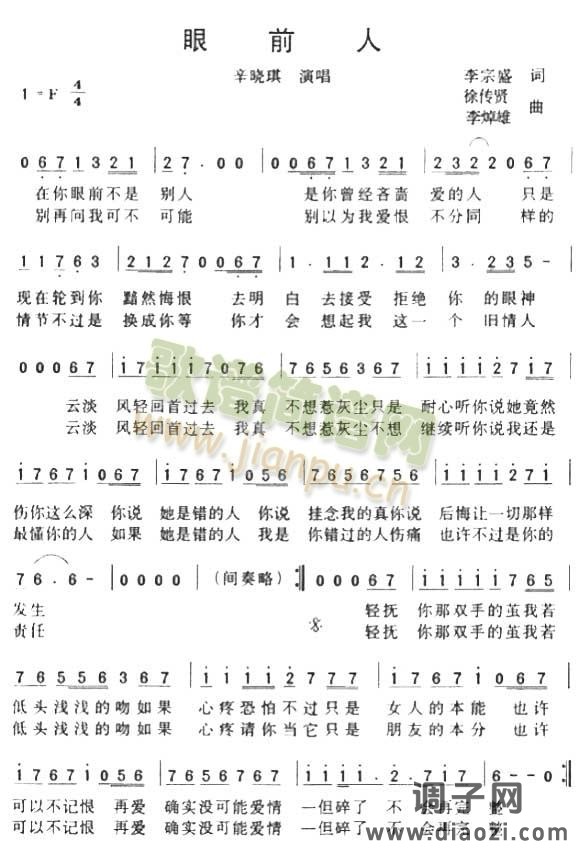 眼 前 人
辛晓琪 演唱
李宗盛 词
徐传贤
李焯雄 曲
1=F 4/4
0 6 7 1 3 2 1 | 2 7 · 0 0 | 0 0 6 7 1 3 2 1 | 2 3 2 2 0 6 7 |
在你眼前不是 别人 是你曾经吝啬 爱的人 只是
别再问我可不 可能 别以为我爱恨 不分同 样的
1 1 7 6 3 | 2 1 2 7 0 0 6 7 | 1 · 1 1 2 · 1 2 | 3 · 2 3 5 - |
现在轮到你 黯然悔恨 去明 白去接受 拒绝 你 的眼神
情节不过是 换成你等 你才 会 想起我 这一 个 旧情人
0 0 0 6 7 | i 7 i i i 0 7 | 7 6 5 6 3 6 7 | i i i i 2 7 i 7 |
云淡 风轻回首过去 我真 不想惹灰尘只是 耐心听你说她竟然
云淡 风轻回首过去 我真 不想惹灰尘不想 继续听你说我还是
i 7 6 7 i 0 6 7 | i 7 6 7 i 0 5 6 | 7 6 5 6 7 5 6 | i i i i 2 7 i |
伤你这么深 你说 她是错的人 你说 挂念我的真你说 后悔让一切那样
最懂你的人 如果 她是错的人 我是 你错过的人伤痛 也许不过是你的
7 6 · 6 - | 0 0 0 0 | (间奏略) :‖ 0 0 0 6 7 | i i i i i 7 6 5 |
发生 轻抚 你那双手的茧我若
责任 轻抚 你那双手的茧我若
7 6 5 5 6 3 6 7 | i i i i 2 7 7 7 | 7 6 7 i 0 6 7
低头浅浅的吻如果 心疼恐怕不过只是 女人的本能 也许
低头浅浅的吻如果 心疼请你当它只是 朋友的本分 也许
i 7 6 7 i 0 5 6
可以不记恨 再爱 确实没可能爱情 一但碎了 不 会再完整
可以不记恨 再爱 确实没可能爱情 一但碎了 不 会再完整
歌谱简谱网
www.jianpu.cn
调子网
www.diaozi.com